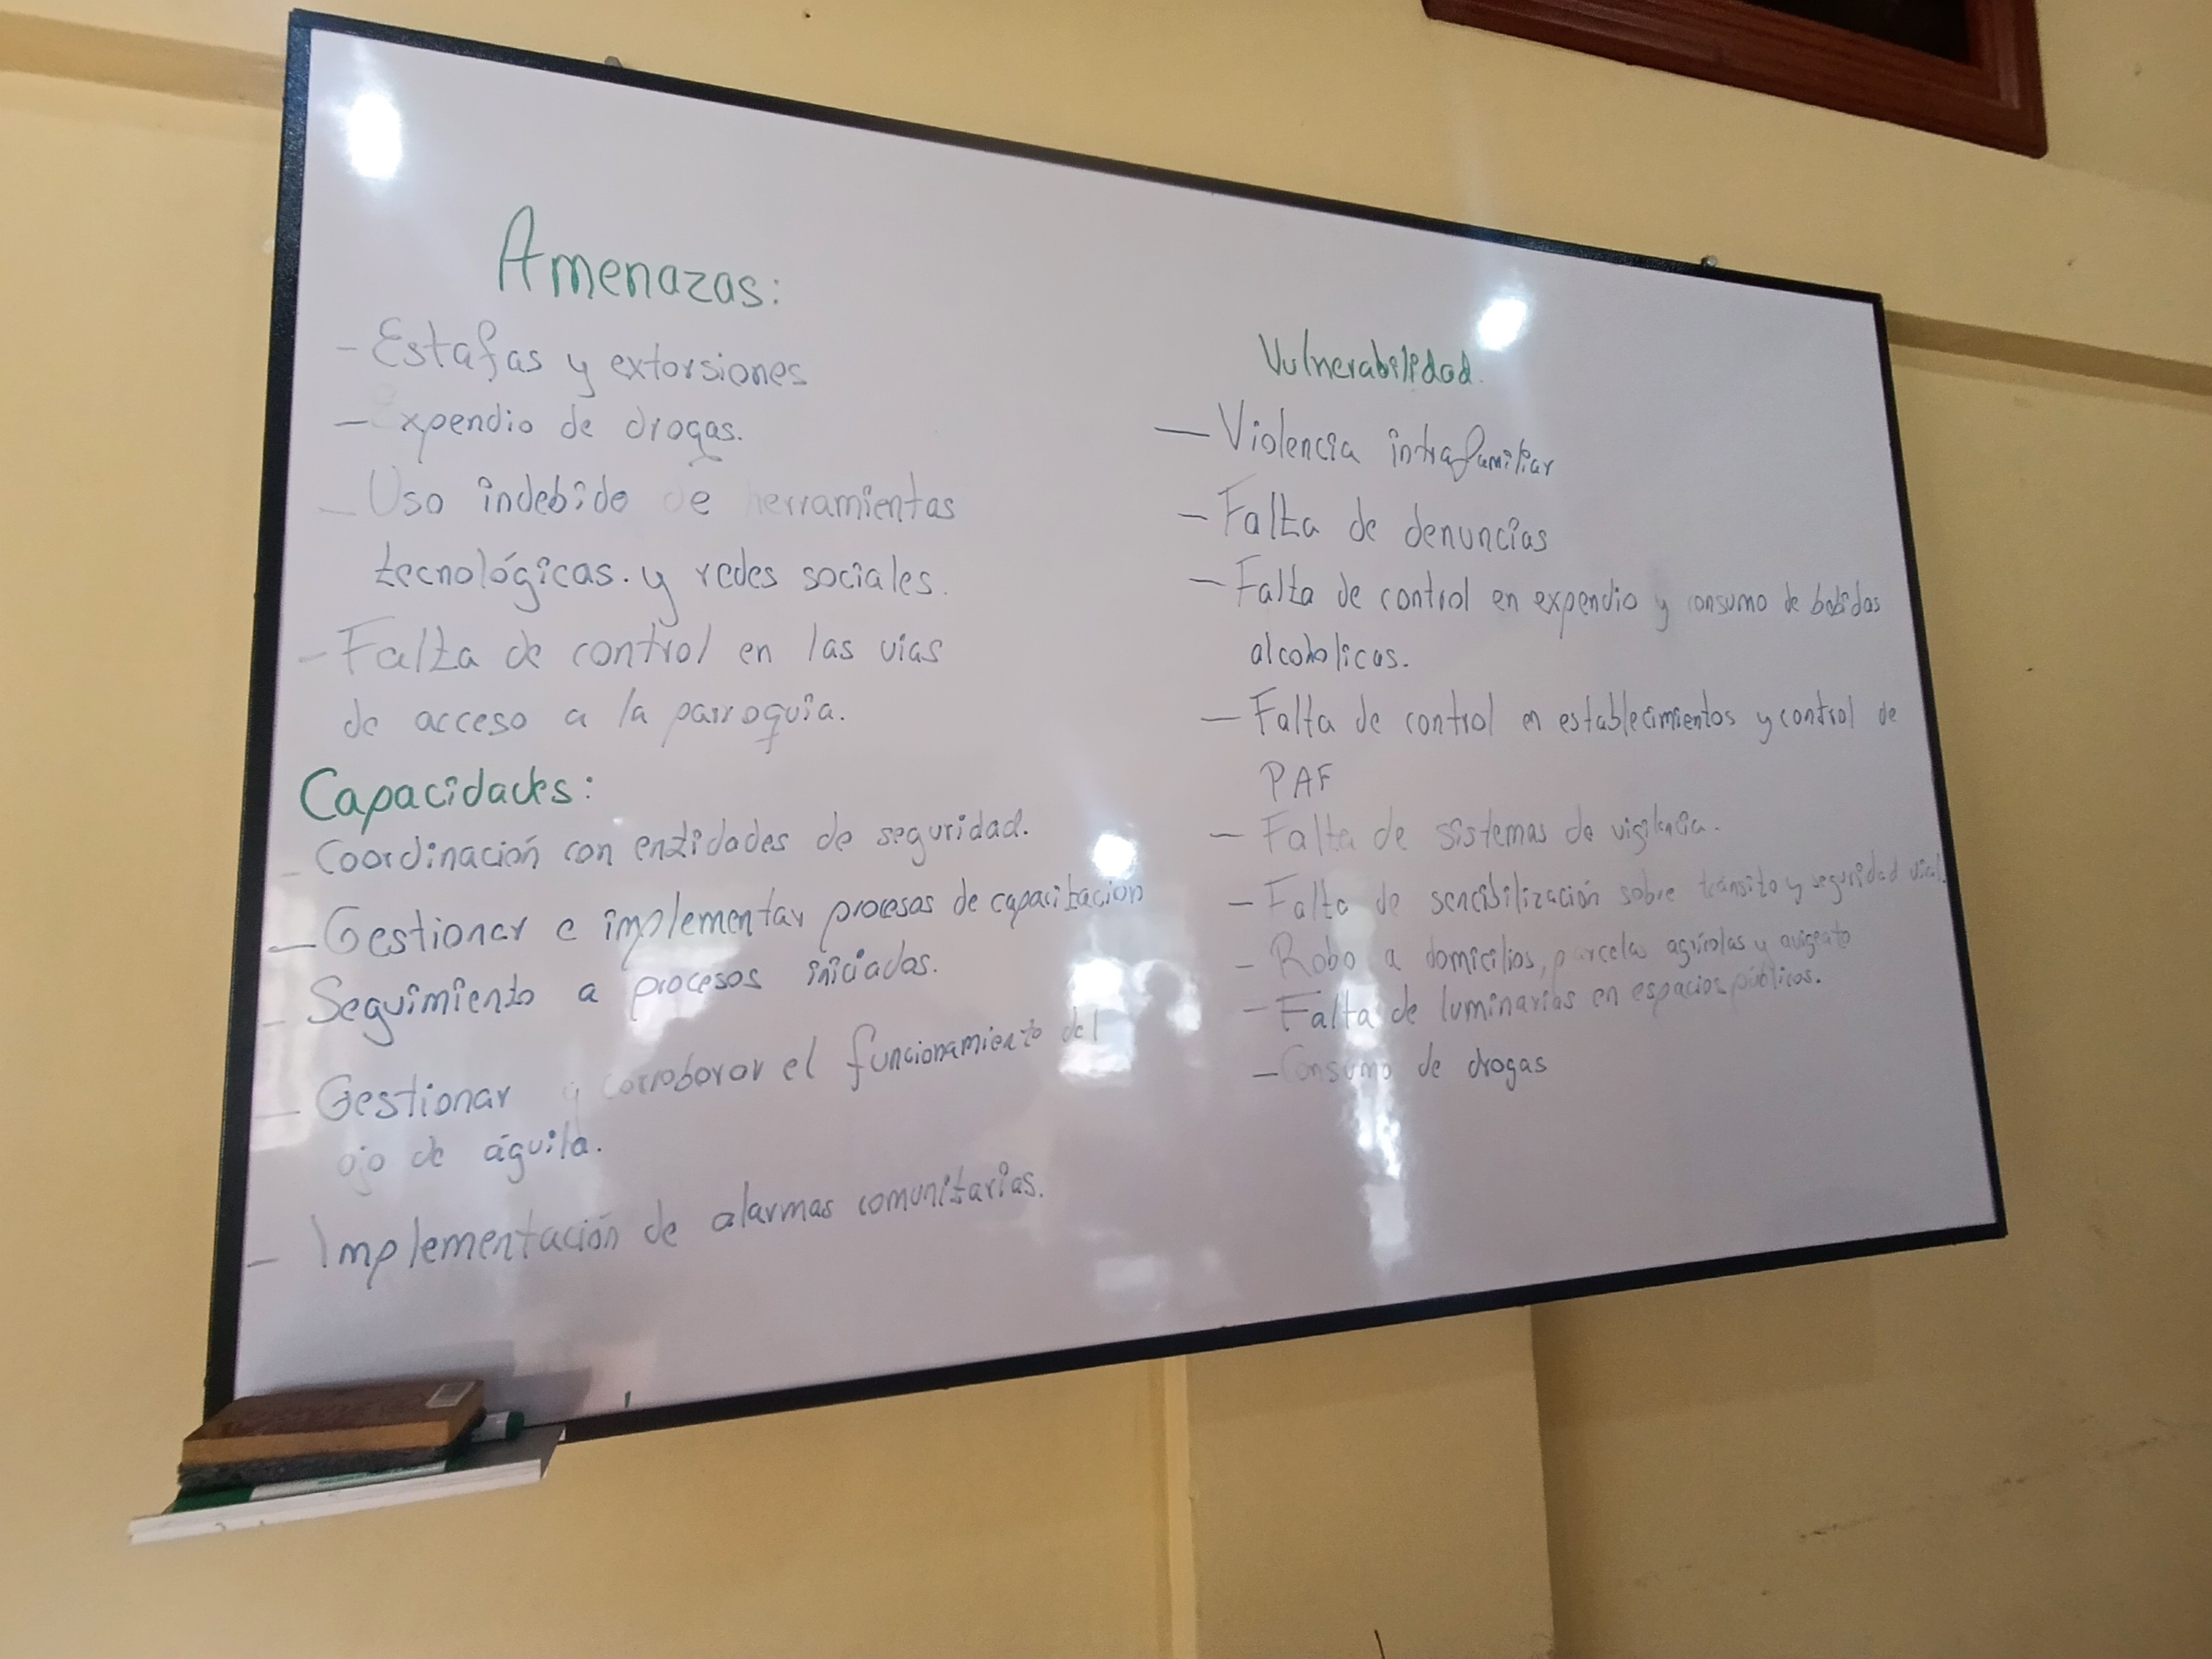 Amenazas:
- Estafas y extorsiones
- Expendio de drogas.
- Uso indebido de herramientas
tecnológicas. y redes sociales.
- Falta de control en las vias
de acceso a la parroquia.
Capacidades:
- Coordinación con entidades de seguridad.
- Gestionar e implementar procesos de capacitación
- Seguimiento a procesos iniciados.
- Gestionar y corroborar el funcionamiento del
ojo de águila.
- Implementación de alarmas comunitarias.
Vulnerabilidad.
- Violencia intrafamiliar
- Falta de denuncias
- Falta de control en expendio y consumo de bebidas
alcoholicas.
- Falta de control en establecimientos y control de
PAF
- Falta de sistemas de vigilancia.
- Falta de sencibilización sobre tránsito y seguridad vial.
- Robo a domicilios, parcelas agrícolas y avigeato
- Falta de luminarias en espacios públicos.
- Consumo de drogas